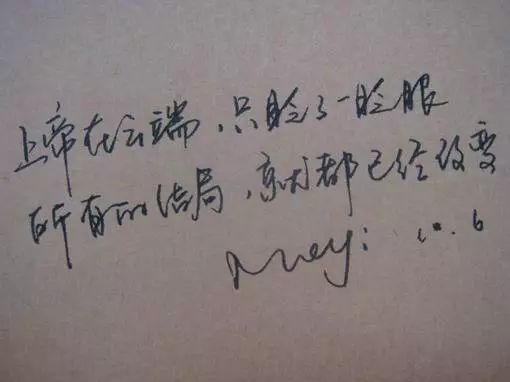 上帝在云端,只眨了一眨眼
所有的结局,就都已经改变